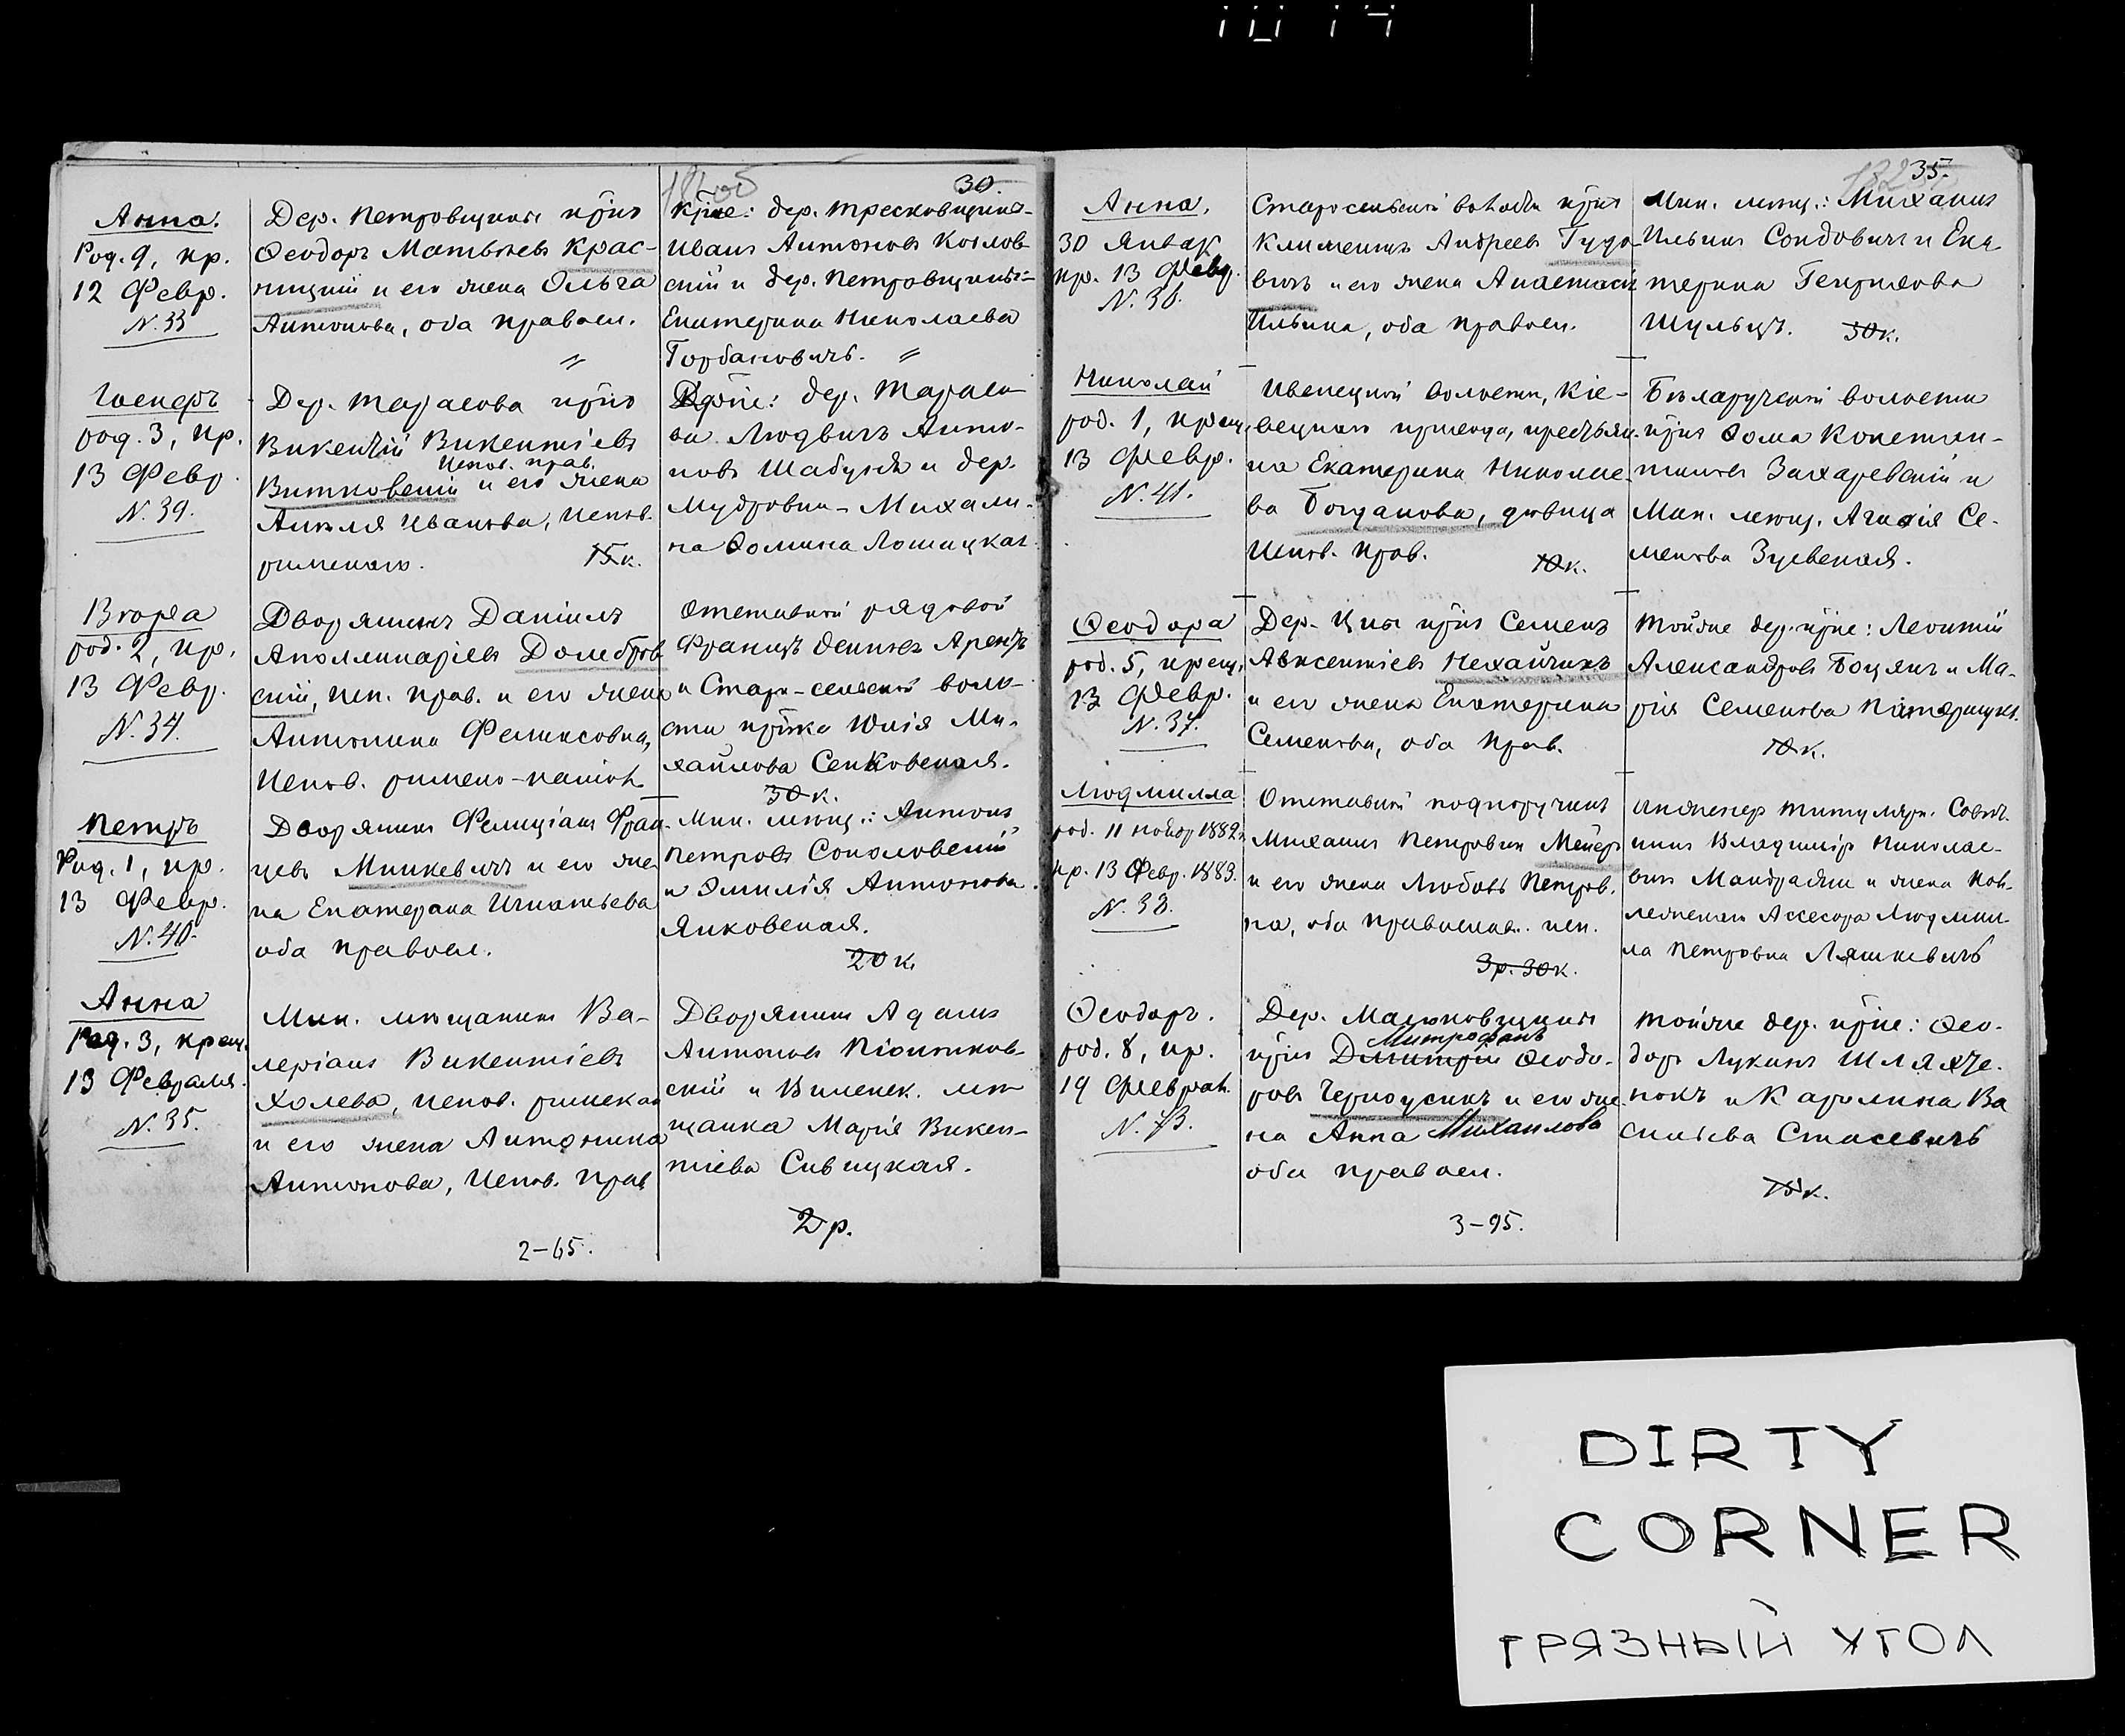 30.
Анна.
Род. 9, кр.
12 Февр.
N. 33
Дер. Петровщины кр͞нъ
Ѳеодоръ Матвѣевъ Крас-
ницкій и его жена Ольга
Антонова, оба правосл.
Кр͞не: дер. Тресковщины-
Иванъ Антоновъ Козлов-
скій и дер. Петровщины-
Екатерина Николаева
Горбановичъ.
род. 3, кр.
13 Февр.
N. 39.
Дер. Тарасова кр͞нъ
Викентій Викентіевъ
испов. прав.
Витковскій и его жена
Анеля Иванова, испов.
римскаго.
15к.
Кр͞не: дер. Тарасо-
ва Людвигъ Анто-
новъ Шабуня и дер.
Мудровки - Михали-
на Ѳомина Лошицкая
род. 2, кр.
13 Февр.
N. 34.
Дворянинъ Даніилъ
Аполлинаріевъ Домбров
скій, исп. прав. и его жена
Антонина Феликсовна,
испов. римско-катол.
Отставной рядовой
Францъ Арентъ
и Старо-сельской воло-
сти кр͞нка Юлія Ми-
хайлова Сенковская.
30 к.
Петръ
Род. 1, кр.
13 Февр.
N. 40.
Дворянинъ Фелиціанъ Фран-
цевъ Мицкевичъ и его же-
на Екатерина Игнатьева
оба правосл.
Мин. мѣщ.: Антонъ
Петровъ Соколовскій
и Эмилія Антонова
Янковская.
20 к.
Анна
Род. 3, крещ.
13 Февраля.
N. 35.
Мин. мѣщанинъ Ва-
леріанъ Викентіевъ
Холева, испов. римскаго
и его жена Антонина
Антонова, испов. прав
Дворянинъ Адамъ
Антоновъ Піотров-
скій и Виленск. мѣ-
щанка Марія Викен-
тіева Сивицкая.
2р.
2-65.
35.
Анна.
30 Январ
кр. 13 Февр.
N. 36.
Старосельской волости кр͞нъ
Климентъ Андреевъ Гудо-
вичъ и его жена Анастасія
Ильина, оба правосл.
Мин. мѣщ.: Михаилъ
Ильинъ Сондовичъ и Ека-
терина Генрихова
Шульцъ. 30к.
Николай
род. 1, крещ.
13 Февр.
N. 41.
Ивенецкой волости, Кіе-
вецкаго прихода, крестьян-
ка Екатерина Николае-
ва Богданова, дѣвица
Испов. прав. 10к.
Бѣларучской волости
кр͞нъ Ѳома Констан-
тиновъ Захаревскій и
Мин. мѣщ. Агаѳія Се-
менова Зуевская.
Ѳеодора
род. 5, крещ.
13 Февр.
N. 37.
Дер. Цны кр͞нъ Семенъ
Авксентіевъ Нехайчикъ
и его жена Екатерина
Семенова, оба прав.
Тойже дер. кр͞не: Леонтій
Александровъ Боцянъ и Ма-
рія Семенова
10к.
Людмилла
род. 11 ноябр 1882.
кр. 13 Февр. 1883.
N. 38.
Отставной подпоручикъ
Михаилъ Петровичъ Мейеръ
и его жена Любовь Петров.
на, оба православн. исп.
3р. 30к.
Инженеръ Титулярн. Совѣт.
никъ Владиміръ Николае-
вичъ и жена Кол-
лежскаго Ассесора Людмил-
ла Петровна Ляшкевичъ
Ѳеодоръ.
род. 8, кр.
19 Феврал.
Дер. Малюковщины
Митрофанъ
кр͞нъ Димитрій Ѳеодо-
ровъ Черноусикъ и его же-
на Анна Михаилова
оба правосл.
Тойже дер. кр͞не: Ѳео-
доръ Лукинъ Шляхте-
нокъ и Каролина Ва
сильева Стасевичъ
15к.
3-95.
DIRTY
CORNER
ГРЯЗНЫЙ УГОЛ